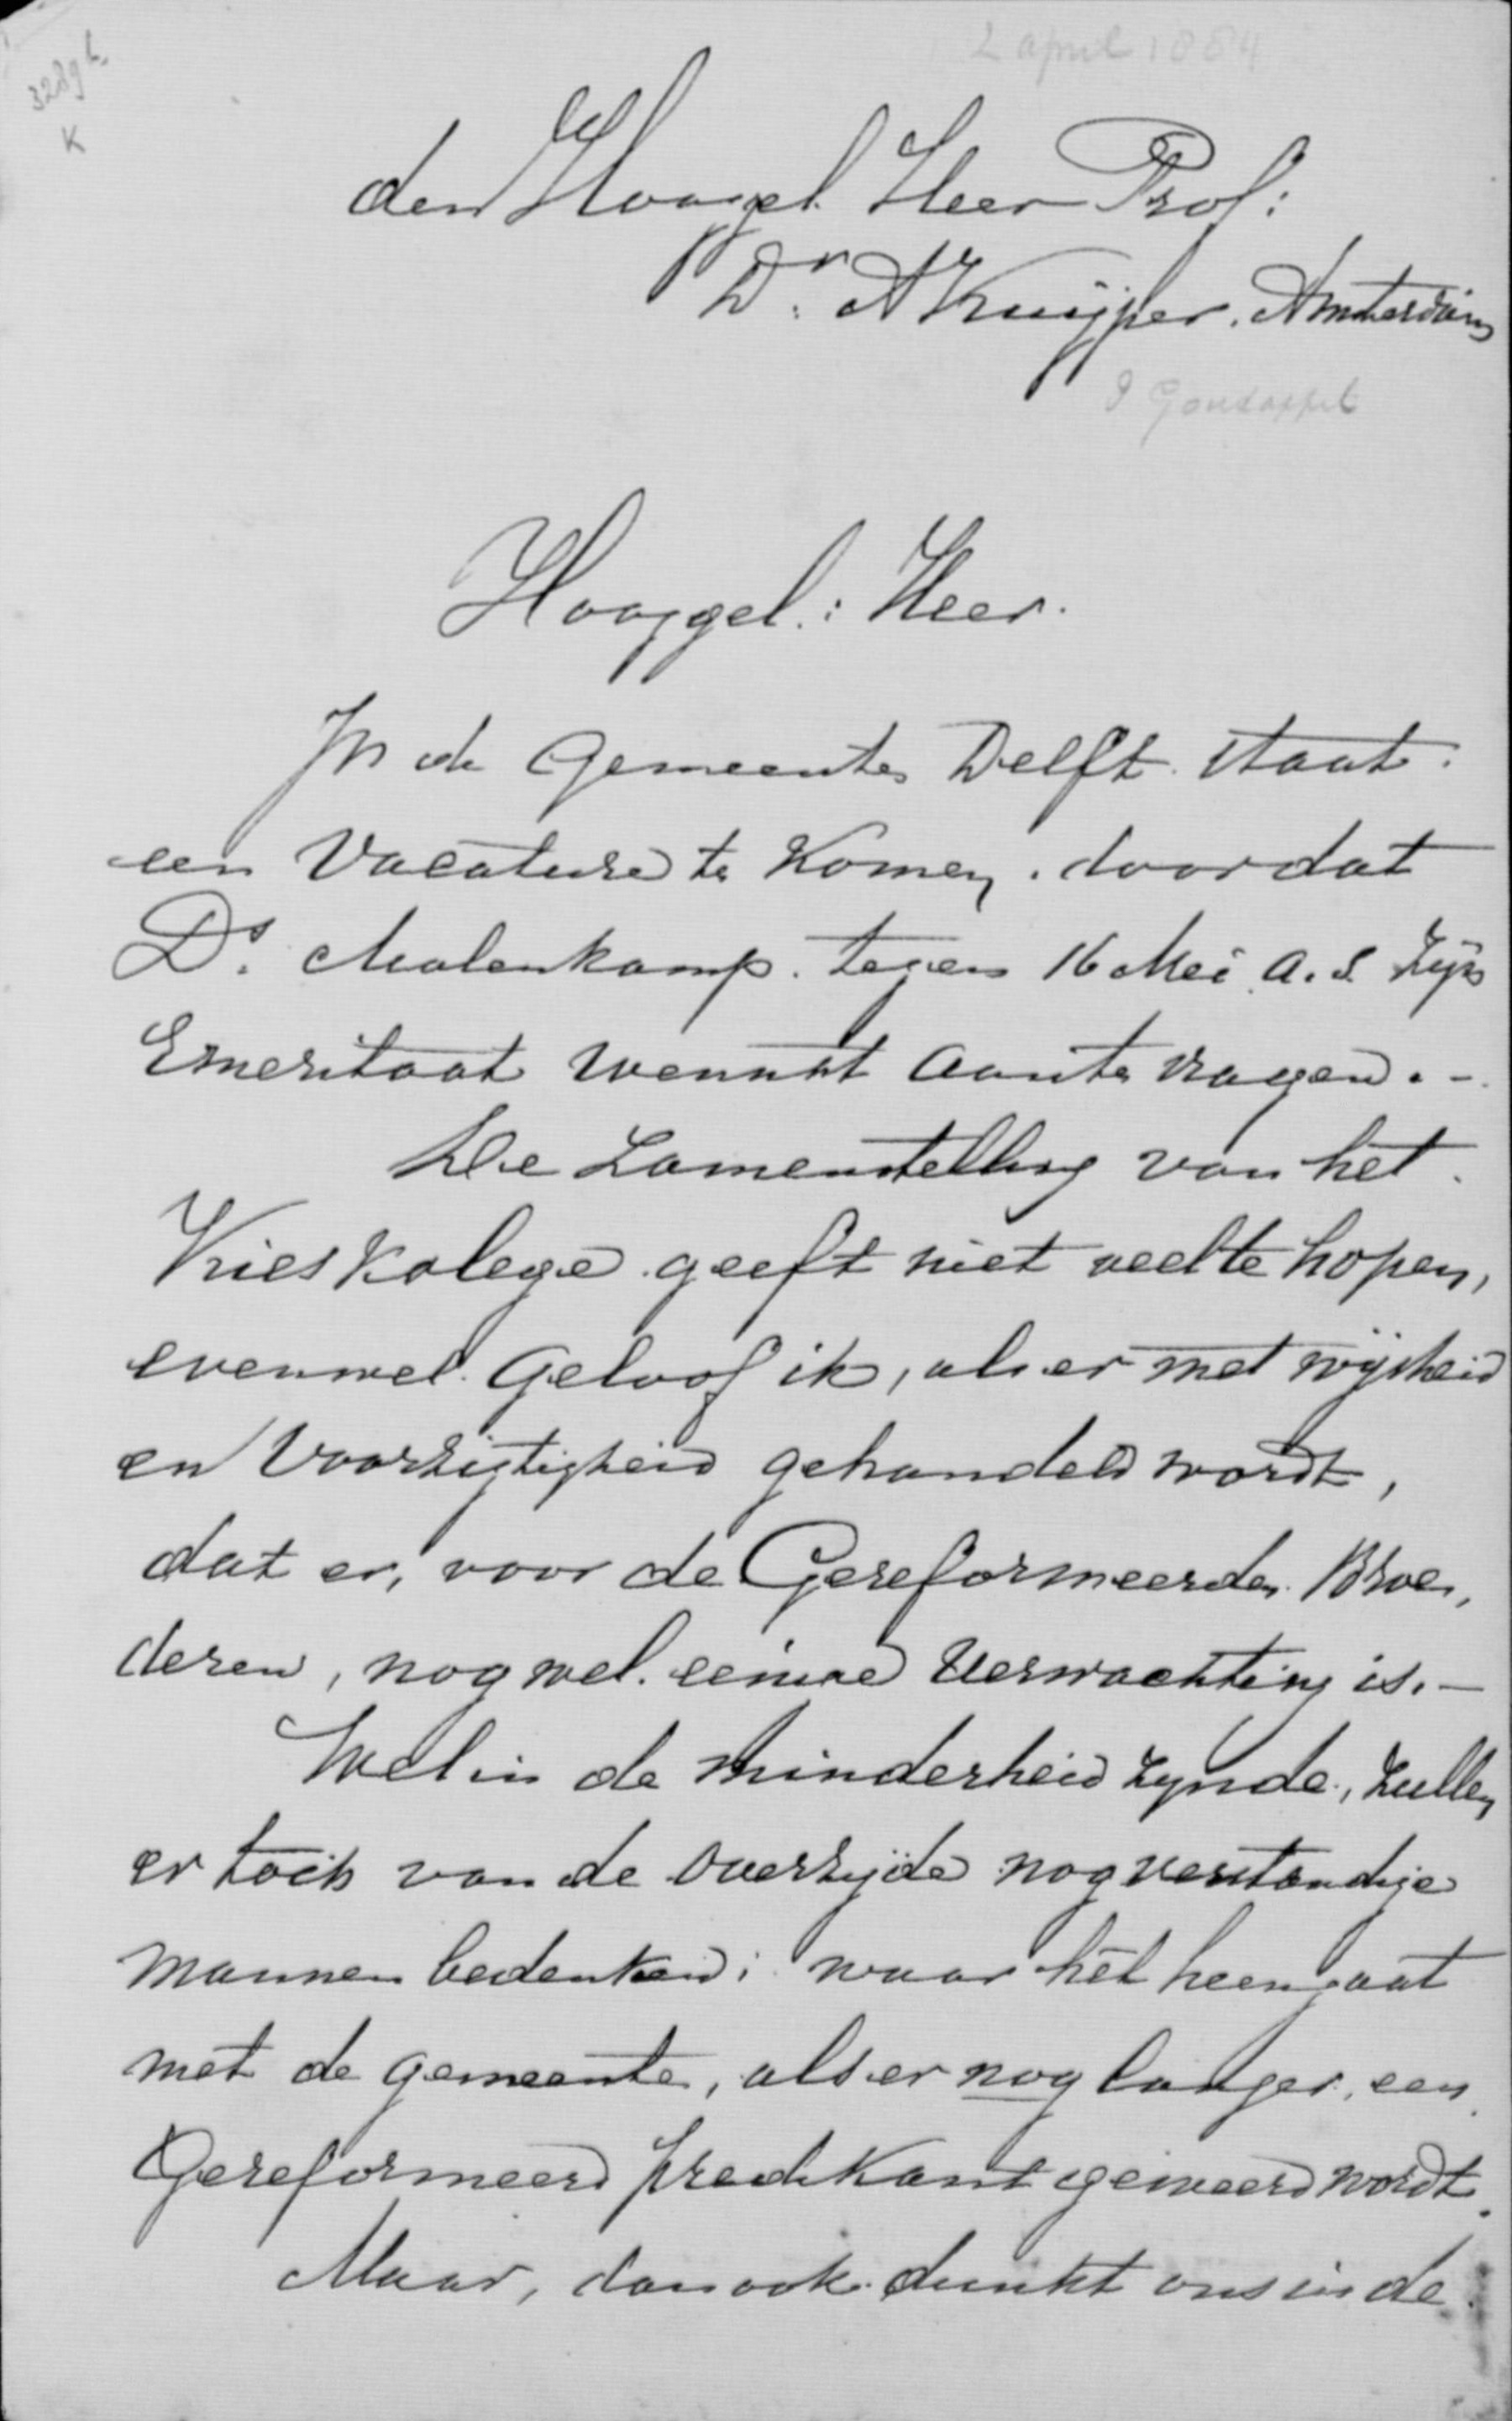 2 april 1884
3289b
K
den Hooggel. Heer Prof:
Dr. A Kuijper. Amsterdam
Hooggel.: Heer.
In de Gemeente Delft. staat.
een Vacature te komen. doordat
Ds. Molenkamp. tegen 16 Mei a.s. zijn
Emeritaat wenscht aante vragen. -
De Zamenstelling van het.
Kieskolege geeft niet veelte hopen,
evenwel. Geloof ik, als er met wijsheid
en Voorzigtigheid gehandeld wordt,
dat er, voor de Gereformeerde Broe,
deren, nog wel. eenige Verwachting is. -
Wel in de Minderheid zynde, zullen
er toch van de overzyde nog verstandige
mannen bedenken: waar het heengaat
met de gemeente, als er nog langer, een
Gereformeerd predikant geweerd wordt.
Maar, dan ook dunkt ons in de